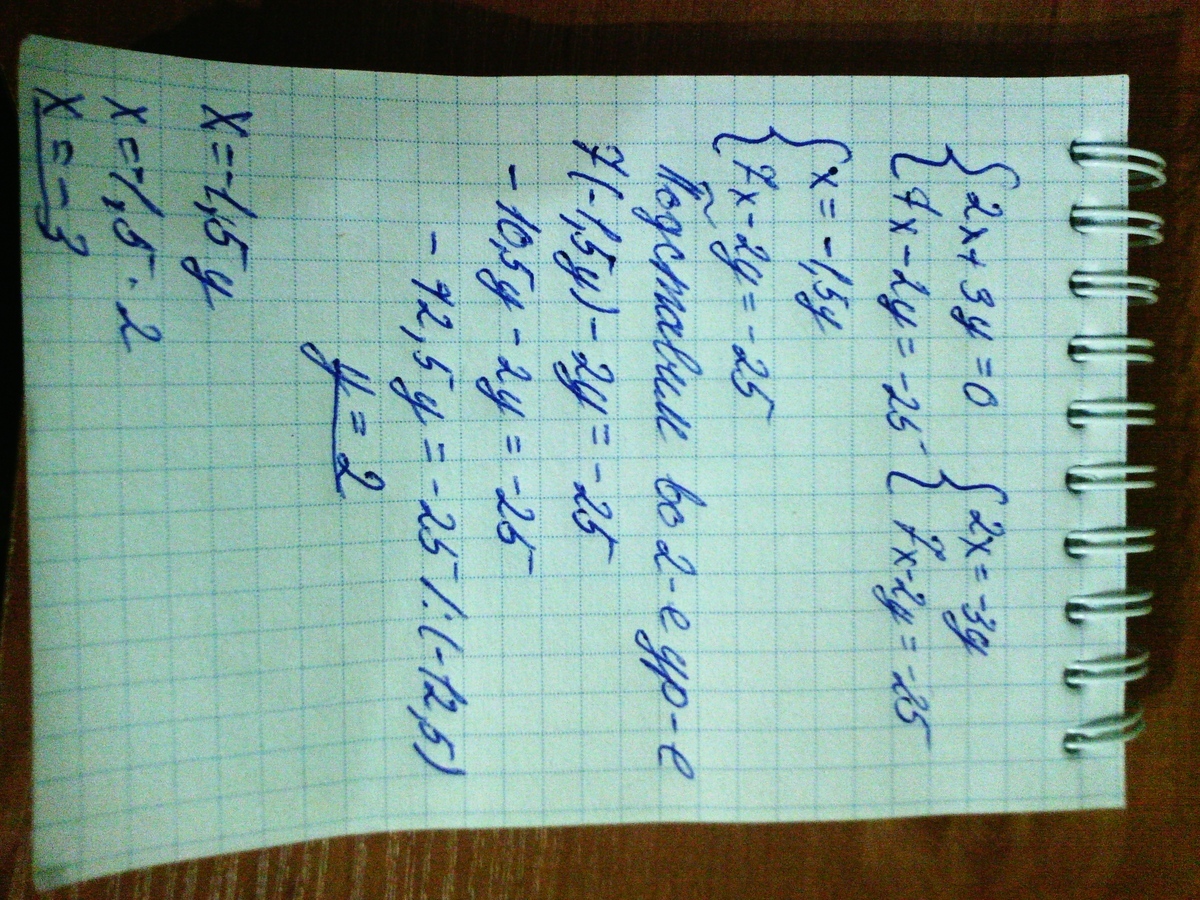 {2x+3y=0 {2x=-3y
{7x-2y=-25 {7x-2y=-25
{x=-1,5y
{7x-2y=-25
Подставим во 2-е ур-е
7(-1,5y)-2y=-25
-10,5y-2y=-25
-12,5y=-25 /:(-12,5)
y=2
x=-1,5y
x=-1,5·2
x=-3